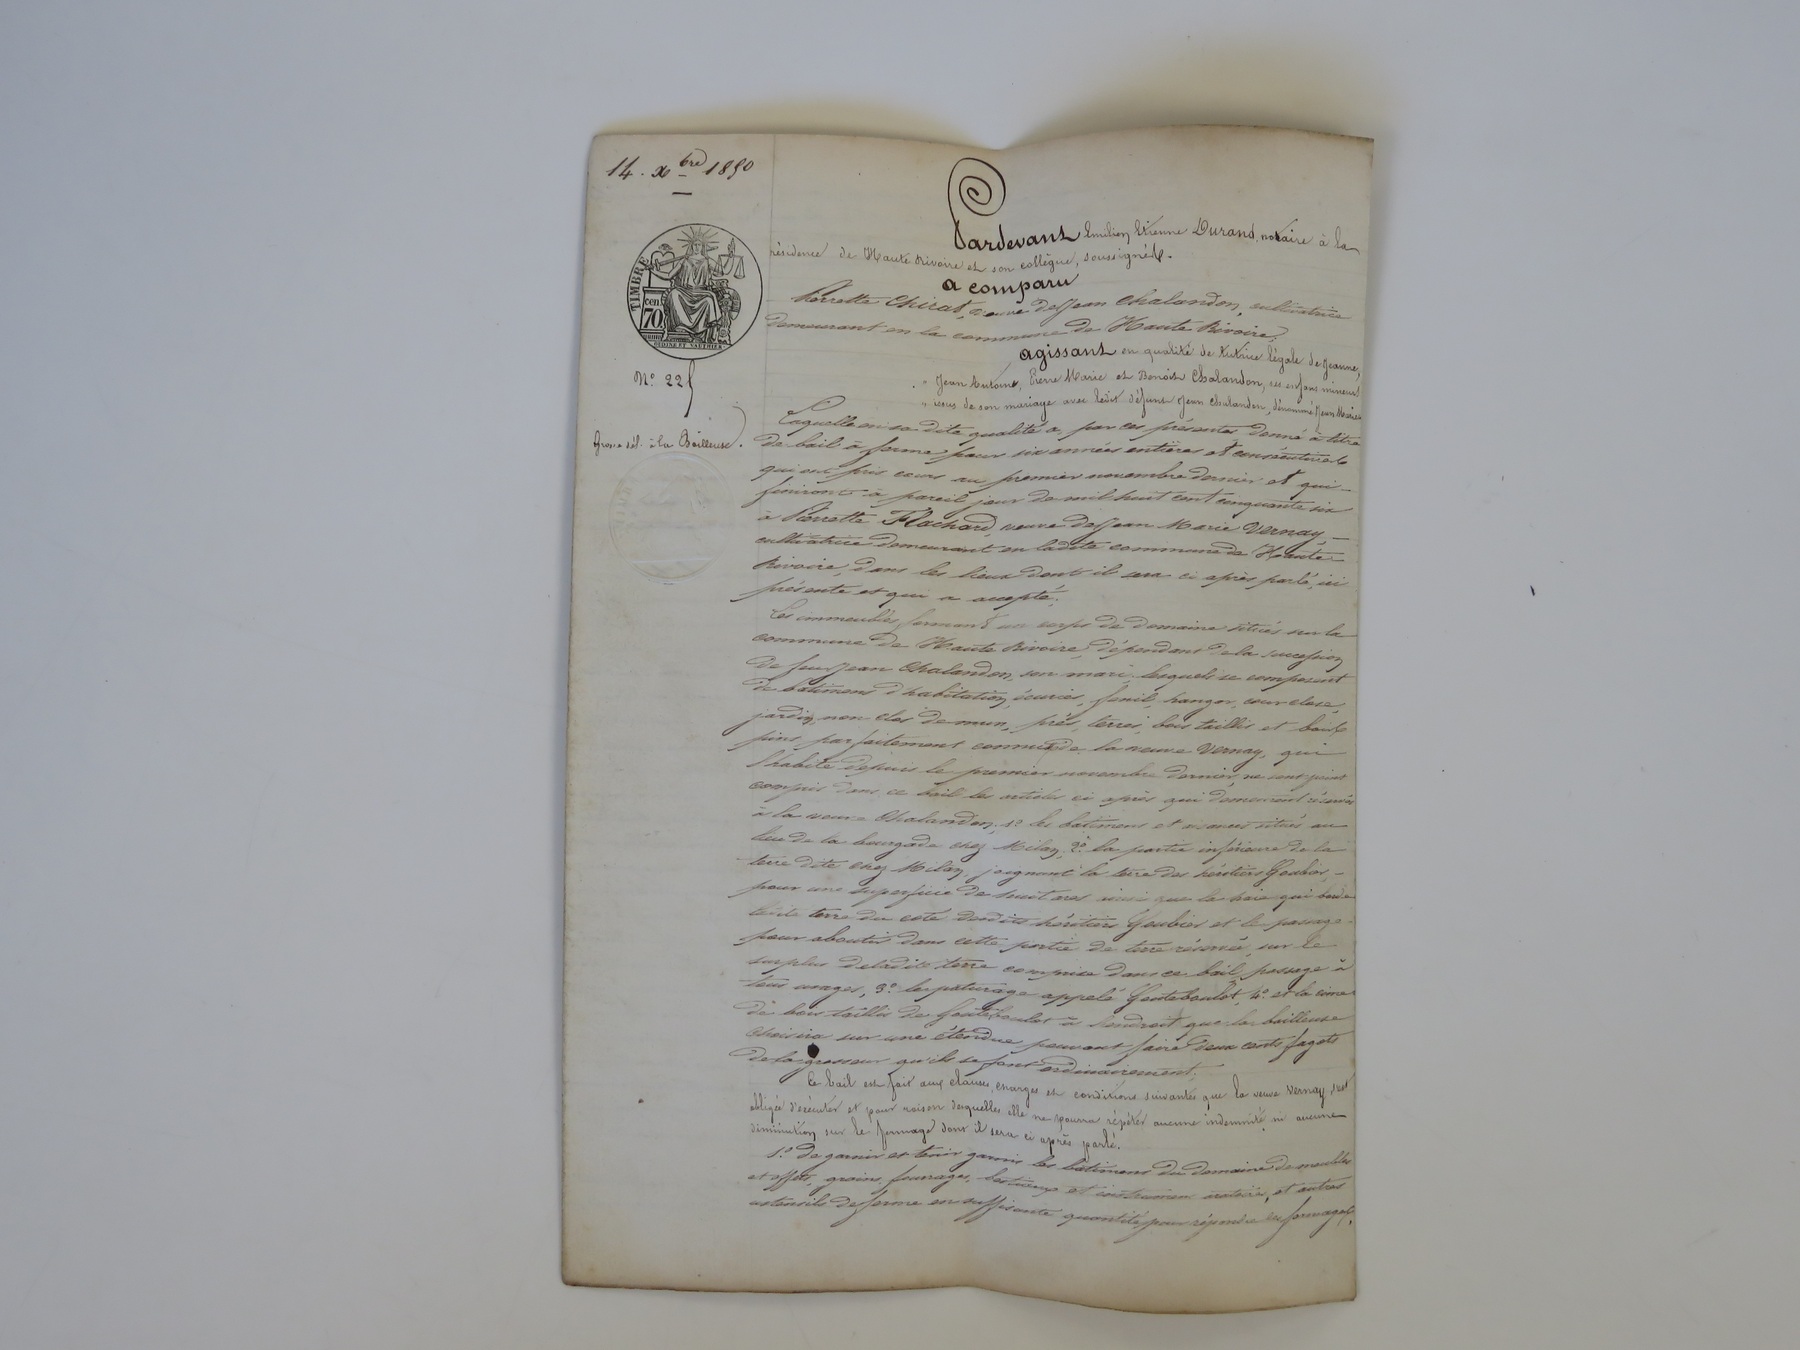 14. xbre 1850
TIMBRE
cen
70
Nº 225
Grosse dél. à la Bailleuse.
Pardevant Emilien Etienne Durand, notaire à la
résidence de Haute Rivoire et son collègue, soussignés.
a comparu
Pierrette Chirat, veuve de Jean Chalandon, cultivatrice
demeurant en la commune de Haute Rivoire,
agissant en qualité de tutrice légale de Jeanne,
Jean Antoine, Pierre Marie et Benoît Chalandon, ses enfans mineurs
issus de son mariage avec ledit défunt Jean Chalandon, dénommé Jean Marie
Laquelle en sa dite qualité a par ces présentes donné à titre
de bail à ferme pour six années entières et consécutives
qui ont pris cours au premier novembre dernier et qui
finiront à pareil jour de mil huit cent cinquante six
à Pierrette Flachard, veuve de Jean Marie Vernay,
cultivatrice demeurant en ladite commune de Haute
Rivoire, dans les lieux dont il sera ci après parlé, ici
présente et qui a accepté.
Les immeubles formant un corps de domaine situés sur la
commune de Haute Rivoire, dépendant de la succession
de feu Jean Chalandon, son mari, lesquels se composent
de bâtimens d'habitation, écuries, fenil, hangar, cour close,
jardin non clos de murs, prés, terres, bois taillis et bois
pins parfaitement connus de la veuve Vernay, qui
l'habite depuis le premier novembre dernier, ne sont point
compris dans ce bail les articles ci après qui demeurent réservés
à la veuve Chalandon, 1º les bâtimens et aisances situés au
lieu de la bourgade chez Milan, 2º la partie inférieure de la
terre dite chez Milan, joignant la terre des héritiers Goubier,
pour une superficie de huit ares ainsi que la haie qui borde
ladite terre du coté desdits héritiers Goubier et le passage
pour aboutir dans cette partie de terre réservée, sur le
surplus de ladite terre comprise dans ce bail, passage à
tous usages, 3º le pâturage appelé Gouteboulot, 4º et la cime
de bois taillis de Gouteboulot à l'endroit que la bailleuse
choisira sur une étendue pouvant faire deux cents fagots
de la grosseur qu'ils se font ordinairement.
Ce bail est fait aux clauses, charges et conditions suivantes que la veuve Vernay s'est
obligée d'exécuter et pour raison desquelles elle ne pourra répéter aucune indemnité ni aucune
diminution sur le fermage dont il sera ci après parlé.
1.º De garnir et tenir garnis les bâtimens du domaine de meubles
et effets, grains, fourrages, bestiaux et instrumens aratoires, et autres
ustensils de ferme en suffisante quantité pour répondre des fermages,